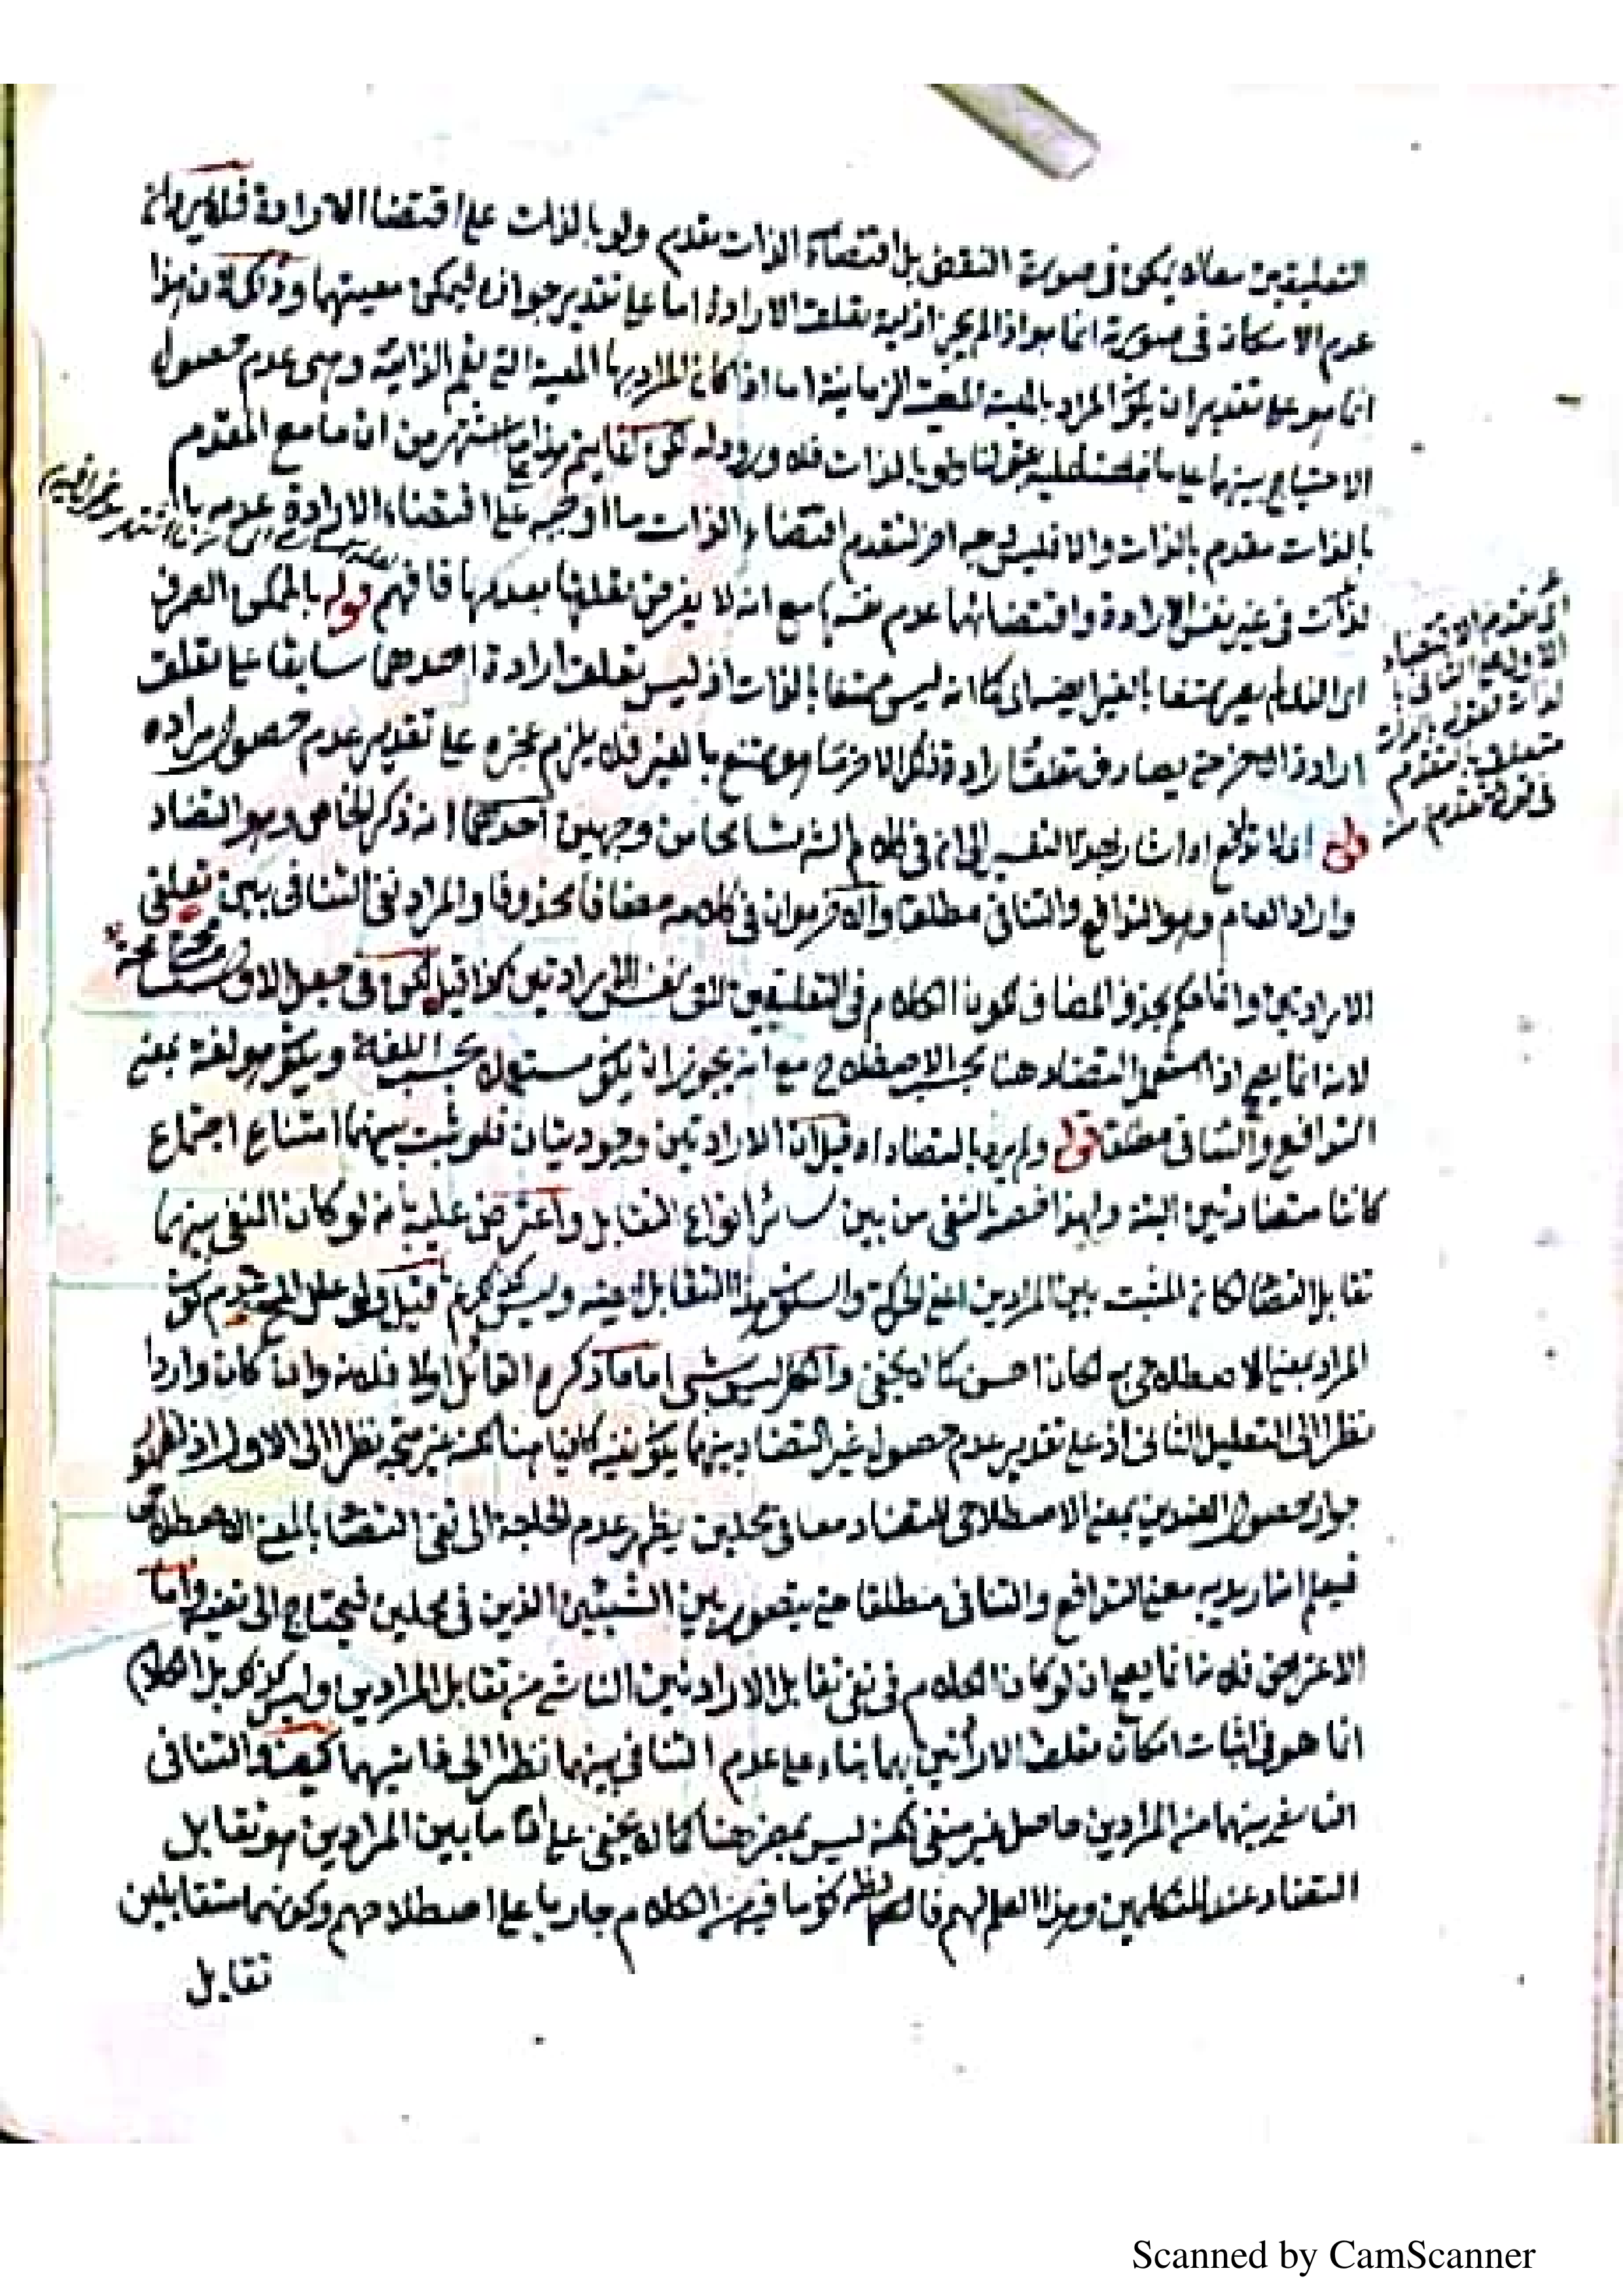 التعليقين معالا يمكن في صورة النقض بل اقتضاء الذات مقدم ولو بالذات على اقتضا الارادة فلا يرد ان
عدم الامكان في صورة انما هو اذا لم يجز ازلية تعلق الارادة اما على تقدير جوازه فيمكن معيتهما وذلك لان هذا
انما هو على تقدير ان يكون المراد بالمعية المعية الزمانية اما اذا كان المراد بها المعية التي تعم الذاتية وهي عدم حصول
الاحتياج بينهما على ما فلا ورود له لكن انما يتم هذا مما اشتهر من ان ما مع المقدم
بالذات مقدم بالذات والا فليس وجه اخر لتقدم اقتضاء الذات ما اوجبه على اقتضاء الارادة عدمه
لذات في غير نفس الارادة واقتضائها عدم نفسه مع انه لا يفرض تعلقها بعدمها فافهم قوله بالممكن الصرف
اي الذي لم يصر ممتنعا بالغير ايضا كما انه ليس ممتنعا بالذات اذ ليس تعلق ارادة احدهما سابقا على تعلق
ارادة الاخر حتى يصادف تعلق ارادة ذلك الاخر بما هو ممتنع بالغير فلا يلزم عجزه على تقدير عدم حصول مراده
قوله اي لا تدافع اه اشار بهذا التفسير الى ان في كلام الش تسامحا من وجهين احدهما انه ذكر الخاص وهو التضاد
واراد العام وهو التدافع والتنافي مطلقا والاخر هو ان في كلامه مضافا محذوفا والمراد نفي التنافي بين تعلقي
الارادتين وانما حكم بحذف المضاف لكون الكلام في التعلقين لا في نفس الارادتين كذا قيل لكن في جعل الاول مسامحة
لانه انما يصح اذا استعمل التضاد هنا بحسب الاصطلاح مع انه يجوز ان يكون مستعملا بحسب اللغة ويكون هو لغة بمعنى
التدافع والتنافي مطلقا قوله ولم يرد بالتضاد اه قيل ان الارادتين وجوديتان فلو ثبت بينهما امتناع اجتماع
كانتا متضادتين البتة ولهذا خصه بالنفي من بين سائر انواع التقابل واعترض عليه بانه لو كان النفي بينهما
تقابل التضاد لكان المثبت بين المرادين اعني الحركة والسكون هذا التقابل بعينه وليس كذلك ثم قيل ولو علل المحشي عدم كون
المراد بمعنى الاصطلاحي لكان احسن كما لا يخفى والكل ليس بشئ اما ما ذكره القائل اولا فلانه وان كان واردا
نظرا الى التعليل الثاني اذ على تقدير عدم حصول غير التضاد بينهما يكون نفيه كافيا هنا لكنه غير متجه نظرا الى الاول اذ
جواز حصول الضدين بمعنى الاصطلاحي للتضاد معا في محلين يظهر عدم الحاجة الى نفي التضاد بالمعنى الاصطلاحي
فيعلم انه اريد به معنى التدافع والتنافي مطلقا حتى يتصور بين الشيئين الذين في محلين فيحتاج الى نفيه واما
الاعتراض فلانه انما يصح ان لو كان الكلام في نفي تقابل الارادتين الناشئ من تقابل المرادين وليس كذلك بل الكلام
انما هو في اثبات امكان تعلق الارادتين بهما بناء على عدم التنافي بينهما نظرا الى ذاتيهما كيف والتنافي
بينهما من المرادين حاصل غير منفي لكنه ليس بمضر هنا كما لا يخفى على ان ما بين المرادين هو تقابل
التضاد عند المتكلمين وهذا العلم لهم فالظ كون ما فيه من الكلام جاريا على اصطلاحهم وكونهما متقابلين
تقابل
اي تقدم الاقتضاء
الاول على الثاني
لذات لقوله بالذات
متعلق بالتقدم
في قوله لتقدم منه
Scanned by CamScanner